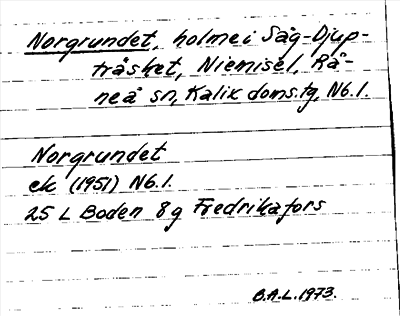 Norgrundet, holme i Såg-Djup-
träsket, Niemisel, Rå-
neå sn, Kalix doms.tg, Nb.l.
Norgrundet
ek (1951) Nb.l.
25 L Boden 8g Fredrikafors
B.A.L. 1973.